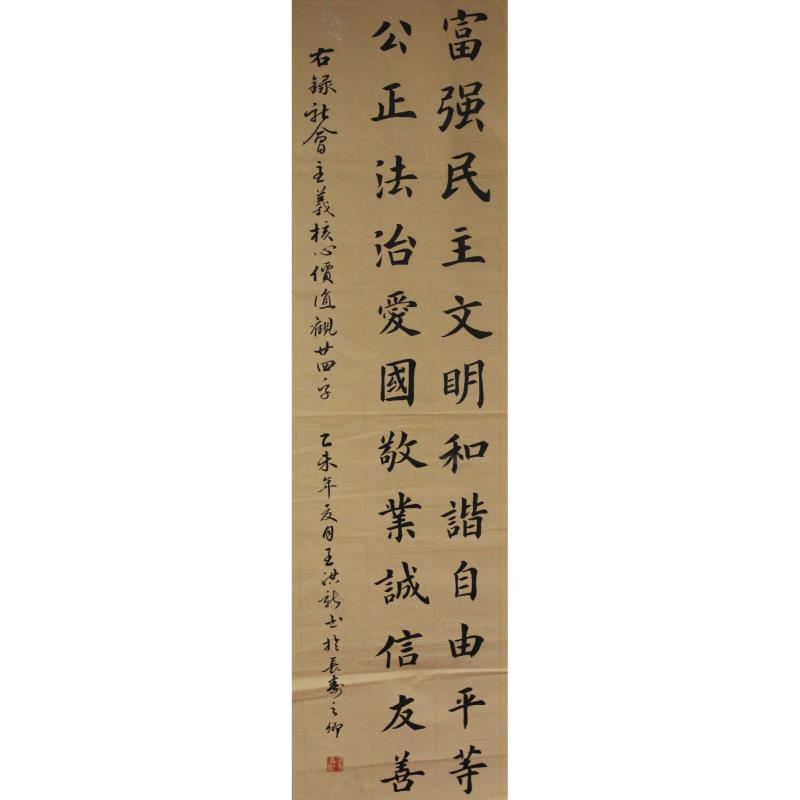 富强民主文明和諧自由平等
公正法治愛國敬業誠信友善
右録社會主義核心價值觀廿四字
乙未年夏月王洪新书於長壽之鄉